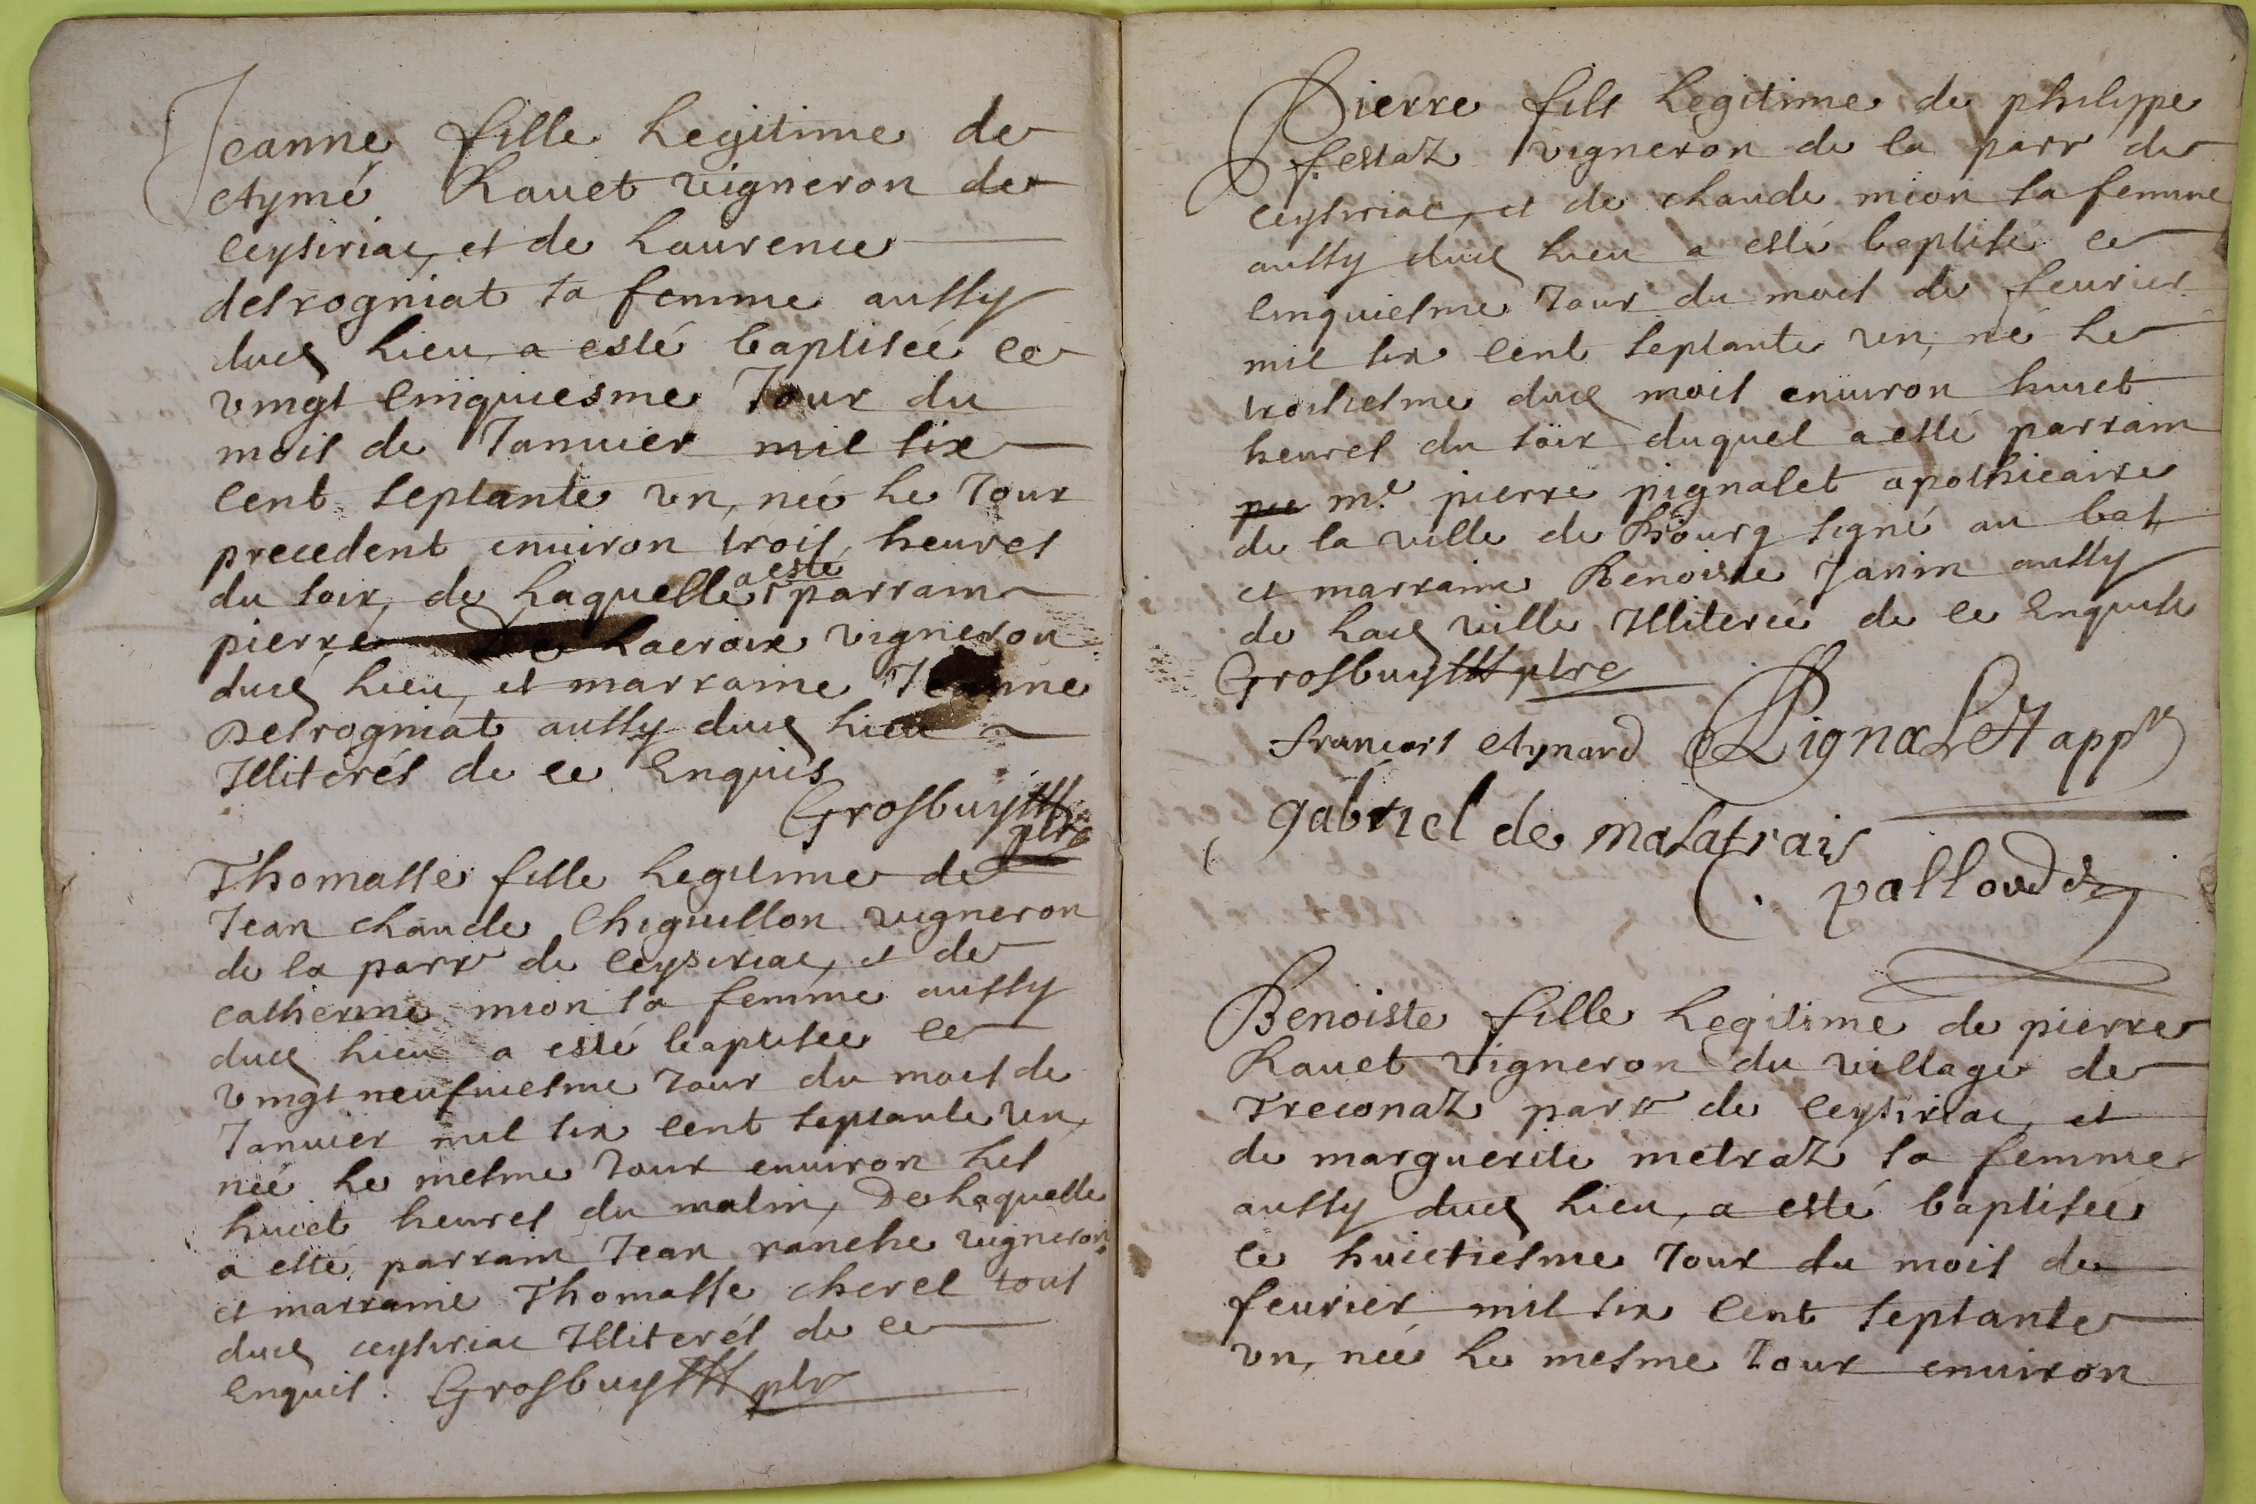 Jeanne fille legitime de
Aymé Ravet vigneron de
Ceyseriac, et de Laurence
desrogniat sa femme aussy
dud lieu, a esté baptisée ce
vingt cinquiesme Jour du
mois de Januier mil six
cent septante vn, née le Jour
precedent enuiron trois heures
du soir, de laquelle a esté parrain
pierre De Lacroix vigneron
dud lieu, et marraine Jeanne
Desrogniat aussy dud lieu
Illiterés de ce Enquis
Grosbuy
ptre
Thomasse fille legitime de
Jean claude Chiquillon vigneron
de la parr de ceyseriac, et de
catherine mion sa femme aussy
dud lieu a esté baptisée ce
vingt neufuiesme Jour du mois de
Januier mil six cent septante vn,
née le mesme Jour enuiron les
huict heures du matin, De laquelle
a esté parrain Jean ranche vigneron
et marraine Thomasse cherel tous
dud ceyseriac Illiterés de ce
Enquis. Grosbuy ptr
Pierre fils legitime de philippe
festaz vigneron de la parr de
ceyseriac, et de claude mion sa femme
aussy dud lieu a esté baptisé ce
cinquiesme Jour du mois de feurier
mil six cent septante vn, né le
troisiesme dud mois enuiron huict
heures du soir duquel a esté parrain
pie me pierre pignalet apothicaire
de la ville de Bourg signé au bas,
et marraine Benoiste Janin aussy
de lad ville Illiterée de ce Enquise
Grosbuy ptre
francois Aynard Pignalet appre
gabriel de malafrais
palloud
Benoiste fille legitime de pierre
Ravet vigneron du village de
Treconaz parr de ceyseriac, et
de marguerite metraz sa femme
aussy dud lieu, a esté baptisée
ce huictiesme Jour du mois de
feurier mil six cent septante
vn, née le mesme Jour enuiron